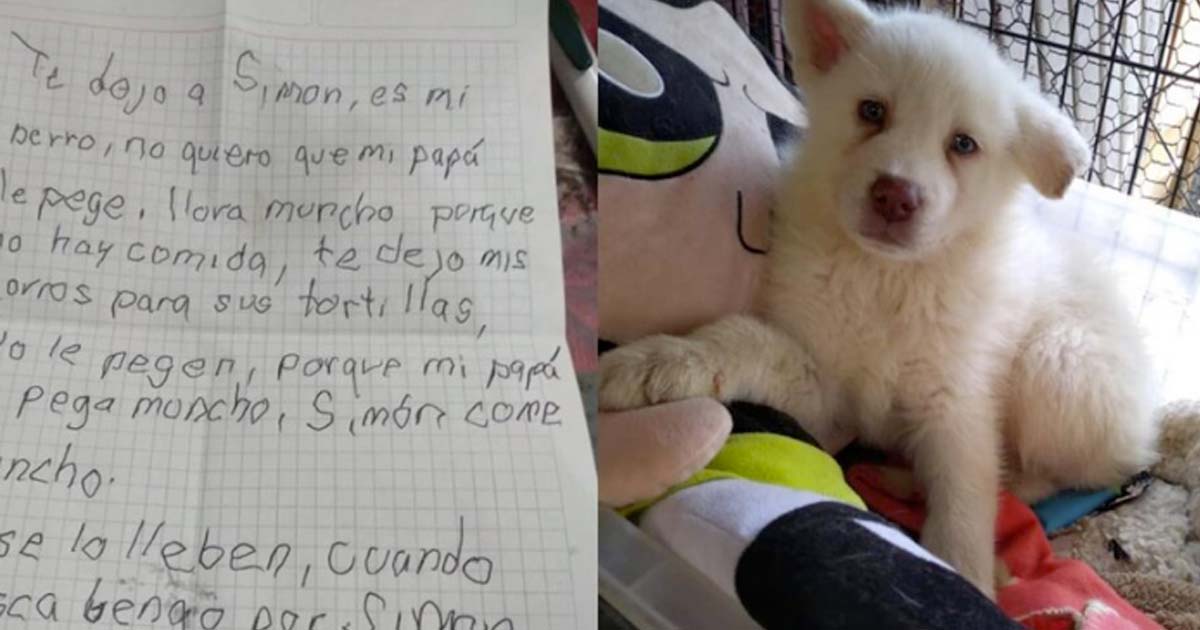 Te dejo a Simon, es mi
perro, no quiero que mi papá
le pege. llora muncho porque
no hay comida, te dejo mis
orros para sus tortillas,
No le pegen, porque mi papá
pega muncho, Simón come
ncho.
se lo lleben, cuando
sca bengo por Simon